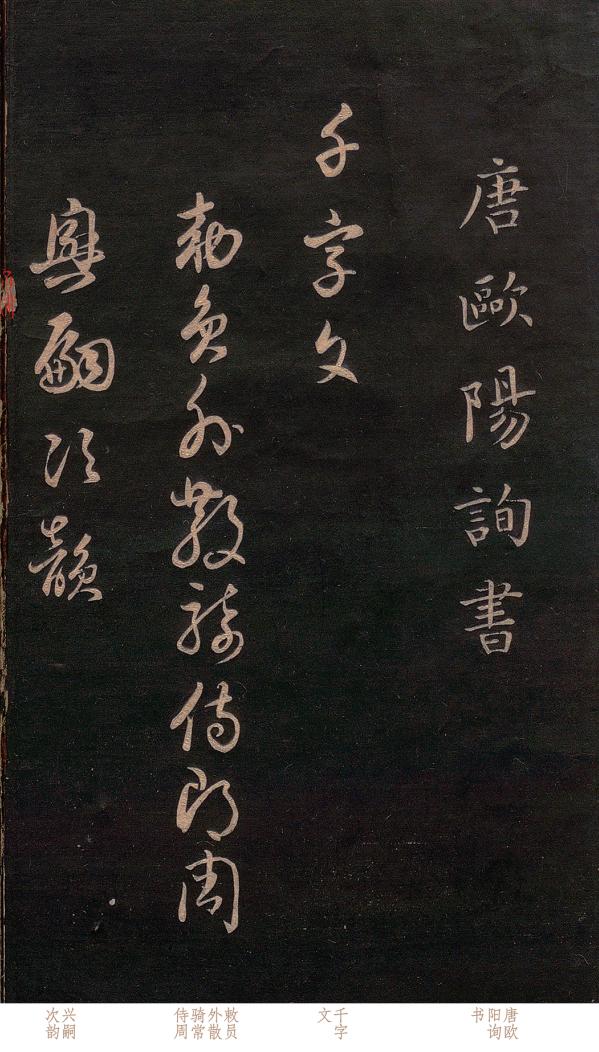 唐歐陽詢書
千字文
勅員外散騎侍郎周
興嗣次韻
唐欧阳询书
千字文
敕员外散骑常侍周
兴嗣次韵